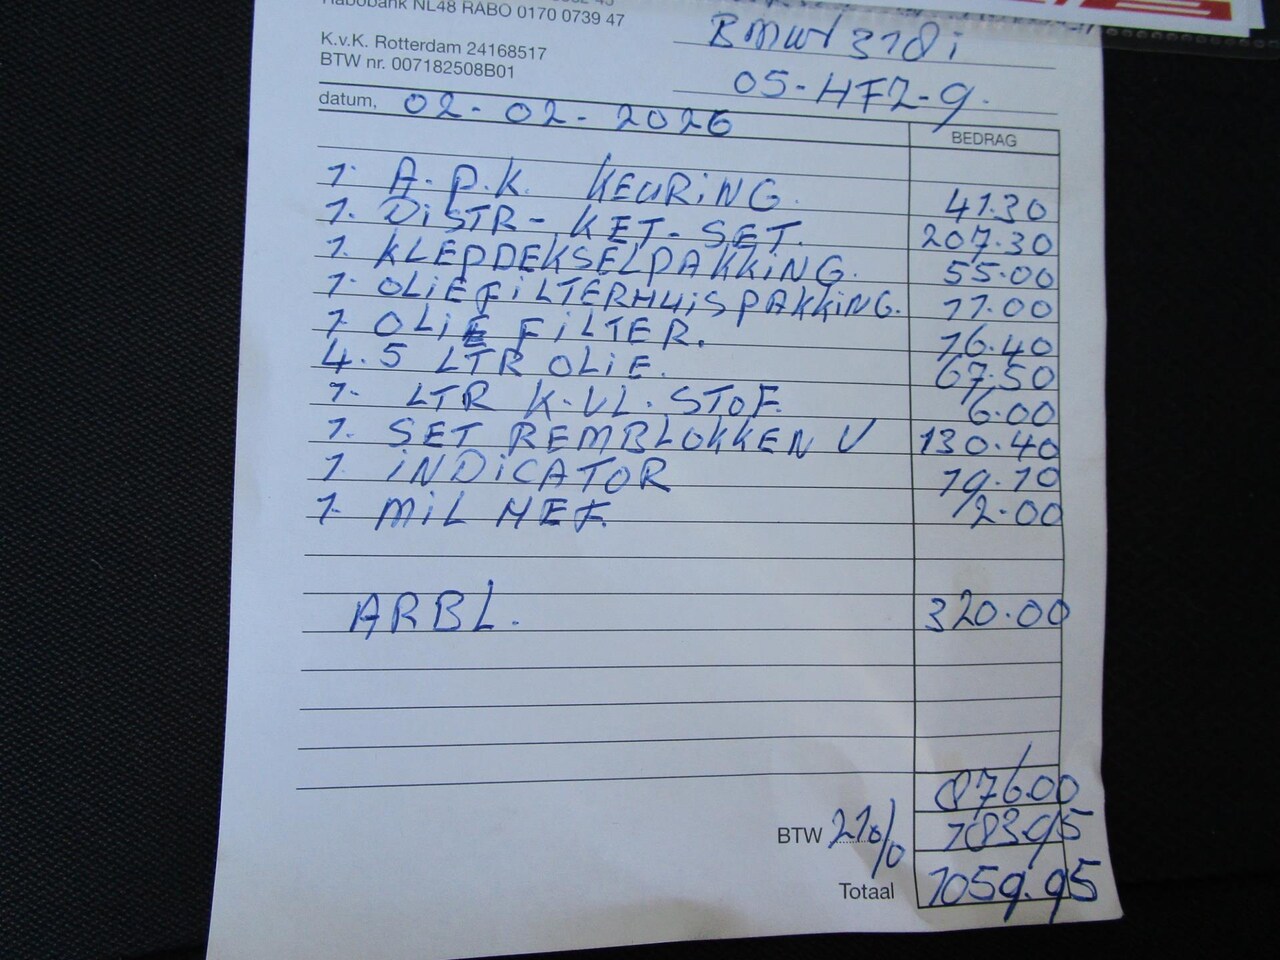 Rabobank NL48 RABO 0170 0739 47
K.v.K. Rotterdam 24168517
BTW nr. 007182508B01
BMW 318i
05-HFZ-9.
datum, 02-02-2026
BEDRAG
1. A.P.K. KEURING. 41.30
1. DISTR-KET-SET. 207.30
1. KLEPDEKSELPAKKING. 55.00
1. OLIEFILTERHUISPAKKING. 11.00
1 OLIE FILTER. 16.40
4.5 LTR OLIE. 67.50
1. LTR K.VL.STOF. 6.00
1. SET REMBLOKKEN V 130.40
1. INDICATOR 19.10
1. MIL HEF. 2.00
ARBL. 320.00
876.00
BTW 21% 183.95
Totaal 1059.95